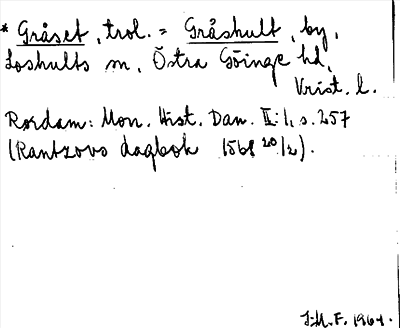 * Gråset, trol. = Gråshult, by,
Loshults sn, Östra Göinge hd,
Krist. l.
Rørdam: Mon. Hist. Dan. II:1, s. 257
(Rantzovs dagbok 1568 20/2).
1964.